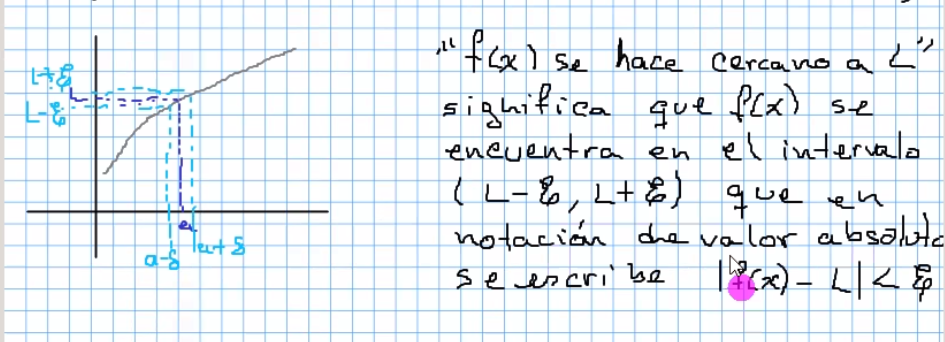 L+ε
L
L-ε
a
a-δ
a+δ
"f(x) se hace cercano a L"
significa que f(x) se
encuentra en el intervalo
(L-ε, L+ε) que en
notación de valor absoluto
se escribe |f(x) - L| < ε